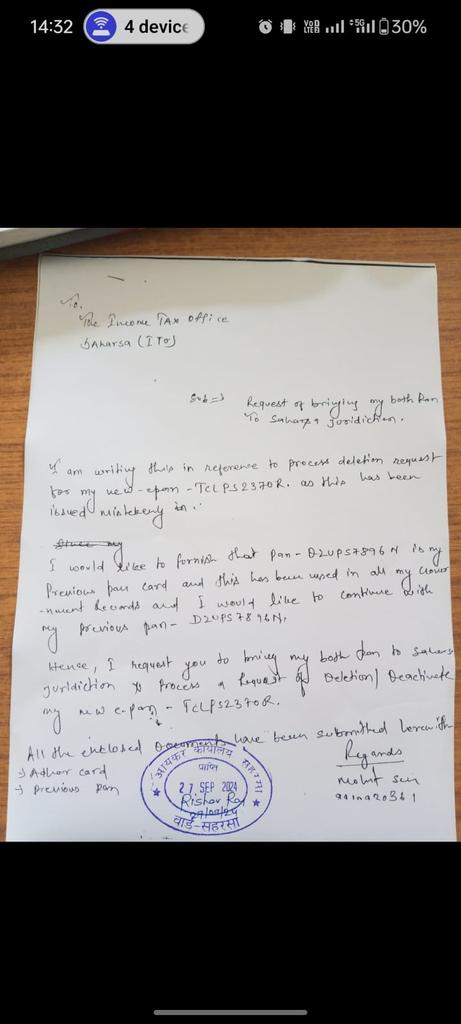 14:32
4 device
VoD
LTE2
5G
30%
To,
The Income Tax Office
Saharsa (ITO)
Sub⇒ Request of bringing my both Pan
To Saharsa Juridiction.
I am writing this in reference to process deletion request
for my new-epan-TCLPS2370R. as this has been
issued mistekenly in.
Since my
I would like to fornish that Pan- D2UPS7896N is my
Previous pan card and this has been used in all my Gover
-nment Records and I would like to continue with
my previous pan- D2UPS7896N.
Hence, I request you to bring my both Pan to Sahars
Juridiction to Process a Request of Deletion/Deactivate
my new e-pan - TCLPS2370R.
All the enclosed Documents have been submitted herewith
→ Adhar card
→ Previous Pan
Regards
Mohit Sen
आयकर कार्यालय सहरसा
प्राप्ति
27 SEP 2024
Rishav Raj
27/09/24
वार्ड-सहरसा